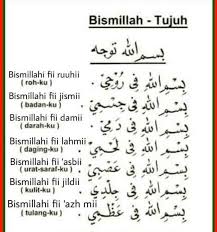 Bismillah - Tujuh
بسم الله توجه
Bismillahi fii ruuhii
( roh-ku )
بِسْمِ اللهِ فِى رُوْحِيْ.
Bismillahi fii jismii
( badan-ku )
بِسْمِ اللهِ فِى جِسْمِيْ.
Bismillahi fii damii
( darah-ku )
بِسْمِ اللهِ فِى دَمِيْ.
Bismillahi fii lahmii
( daging-ku )
بِسْمِ اللهِ فِى لَحْمِيْ.
Bismillahi fii 'asbii
( urat-saraf-ku )
بِسْمِ اللهِ فِى عَصَبِيْ.
Bismillahi fii jildii
( kulit-ku )
بِسْمِ اللهِ فِى جِلْدِيْ.
Bismillahi fii 'azh mii
( tulang-ku )
بِسْمِ اللهِ فِى عَظْمِيْ.